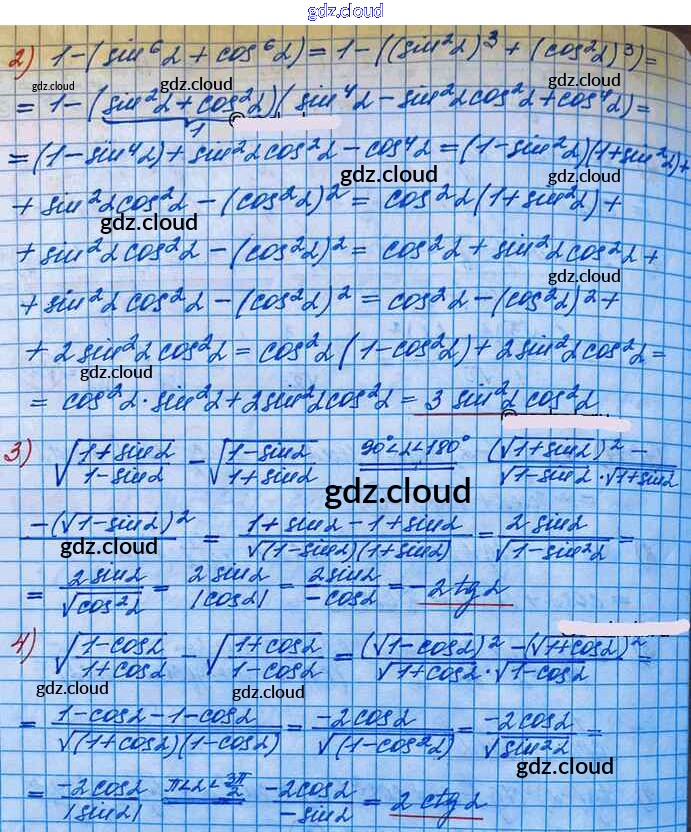 gdz.cloud
2) 1-(sin⁶α + cos⁶α) = 1-((sin²α)³ + (cos²α)³) =
gdz.cloud gdz.cloud gdz.cloud
= 1-(sin²α + cos²α)(sin⁴α - sin²αcos²α + cos⁴α) =
1
= (1-sin⁴α) + sin²αcos²α - cos⁴α = (1-sin²α)(1+sin²α) +
gdz.cloud gdz.cloud
+ sin²αcos²α - (cos²α)² = cos²α(1+sin²α) +
gdz.cloud
+ sin²αcos²α - (cos²α)² = cos²α + sin²αcos²α +
gdz.cloud
+ sin²αcos²α - (cos²α)² = cos²α - (cos²α)² +
gdz.cloud
+ 2sin²αcos²α = cos²α(1-cos²α) + 2sin²αcos²α =
gdz.cloud
= cos²α·sin²α + 2sin²αcos²α = 3 sin²α cos²α
gdz.cloud
3) √((1+sinα)/(1-sinα)) - √((1-sinα)/(1+sinα)) 90°<α<180° = ((√(1+sinα))² -
gdz.cloud
-(√(1-sinα))²)/(√(1-sinα)·√(1+sinα)) = (1+sinα-1+sinα)/√((1-sinα)(1+sinα)) = 2sinα/√(1-sin²α) =
gdz.cloud
= 2sinα/√(cos²α) = 2sinα/|cosα| = 2sinα/(-cosα) = -2tgα
gdz.cloud
4) √((1-cosα)/(1+cosα)) - √((1+cosα)/(1-cosα)) = ((√(1-cosα))² - (√(1+cosα))²)/(√(1+cosα)·√(1-cosα)) =
gdz.cloud gdz.cloud
= (1-cosα-1-cosα)/√((1+cosα)(1-cosα)) = -2cosα/√(1-cos²α) = -2cosα/√(sin²α) =
gdz.cloud gdz.cloud
= -2cosα/|sinα| π<α<3π/2 = -2cosα/(-sinα) = 2ctgα